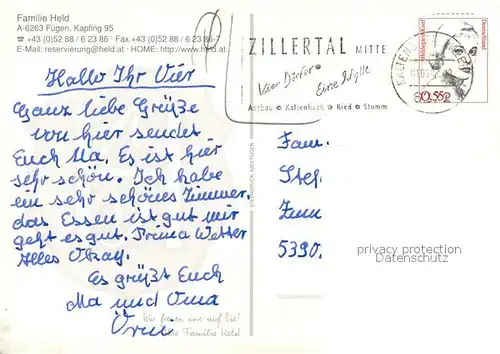 Familie Held
A-6263 Fügen, Kapfing 95
☎ +43 (0)52 88 / 62 3 86 · Fax +43 (0)52 88 / 62 23 86-7
E-Mail: reservierung@held.at · HOME: http://www.held.at
ZILLERTAL MITTE
Vier Dörfer Eine Idylle
Aschau Kaltenbach Ried Stumm
Deutschland
Hallo Ihr Vier
Ganz liebe Grüße
von hier sendet
Euch Ma. Es ist hier
sehr schön. Ich habe
ein sehr schönes Zimmer,
das Essen ist gut mir
geht es gut. Prima Wetter
Alles Okay.
Es grüßt Euch
Ma und Oma
Wir freuen uns auf Sie!
Familie Held
Fam.
Stef.
5390.
privacy protection
Datenschutz